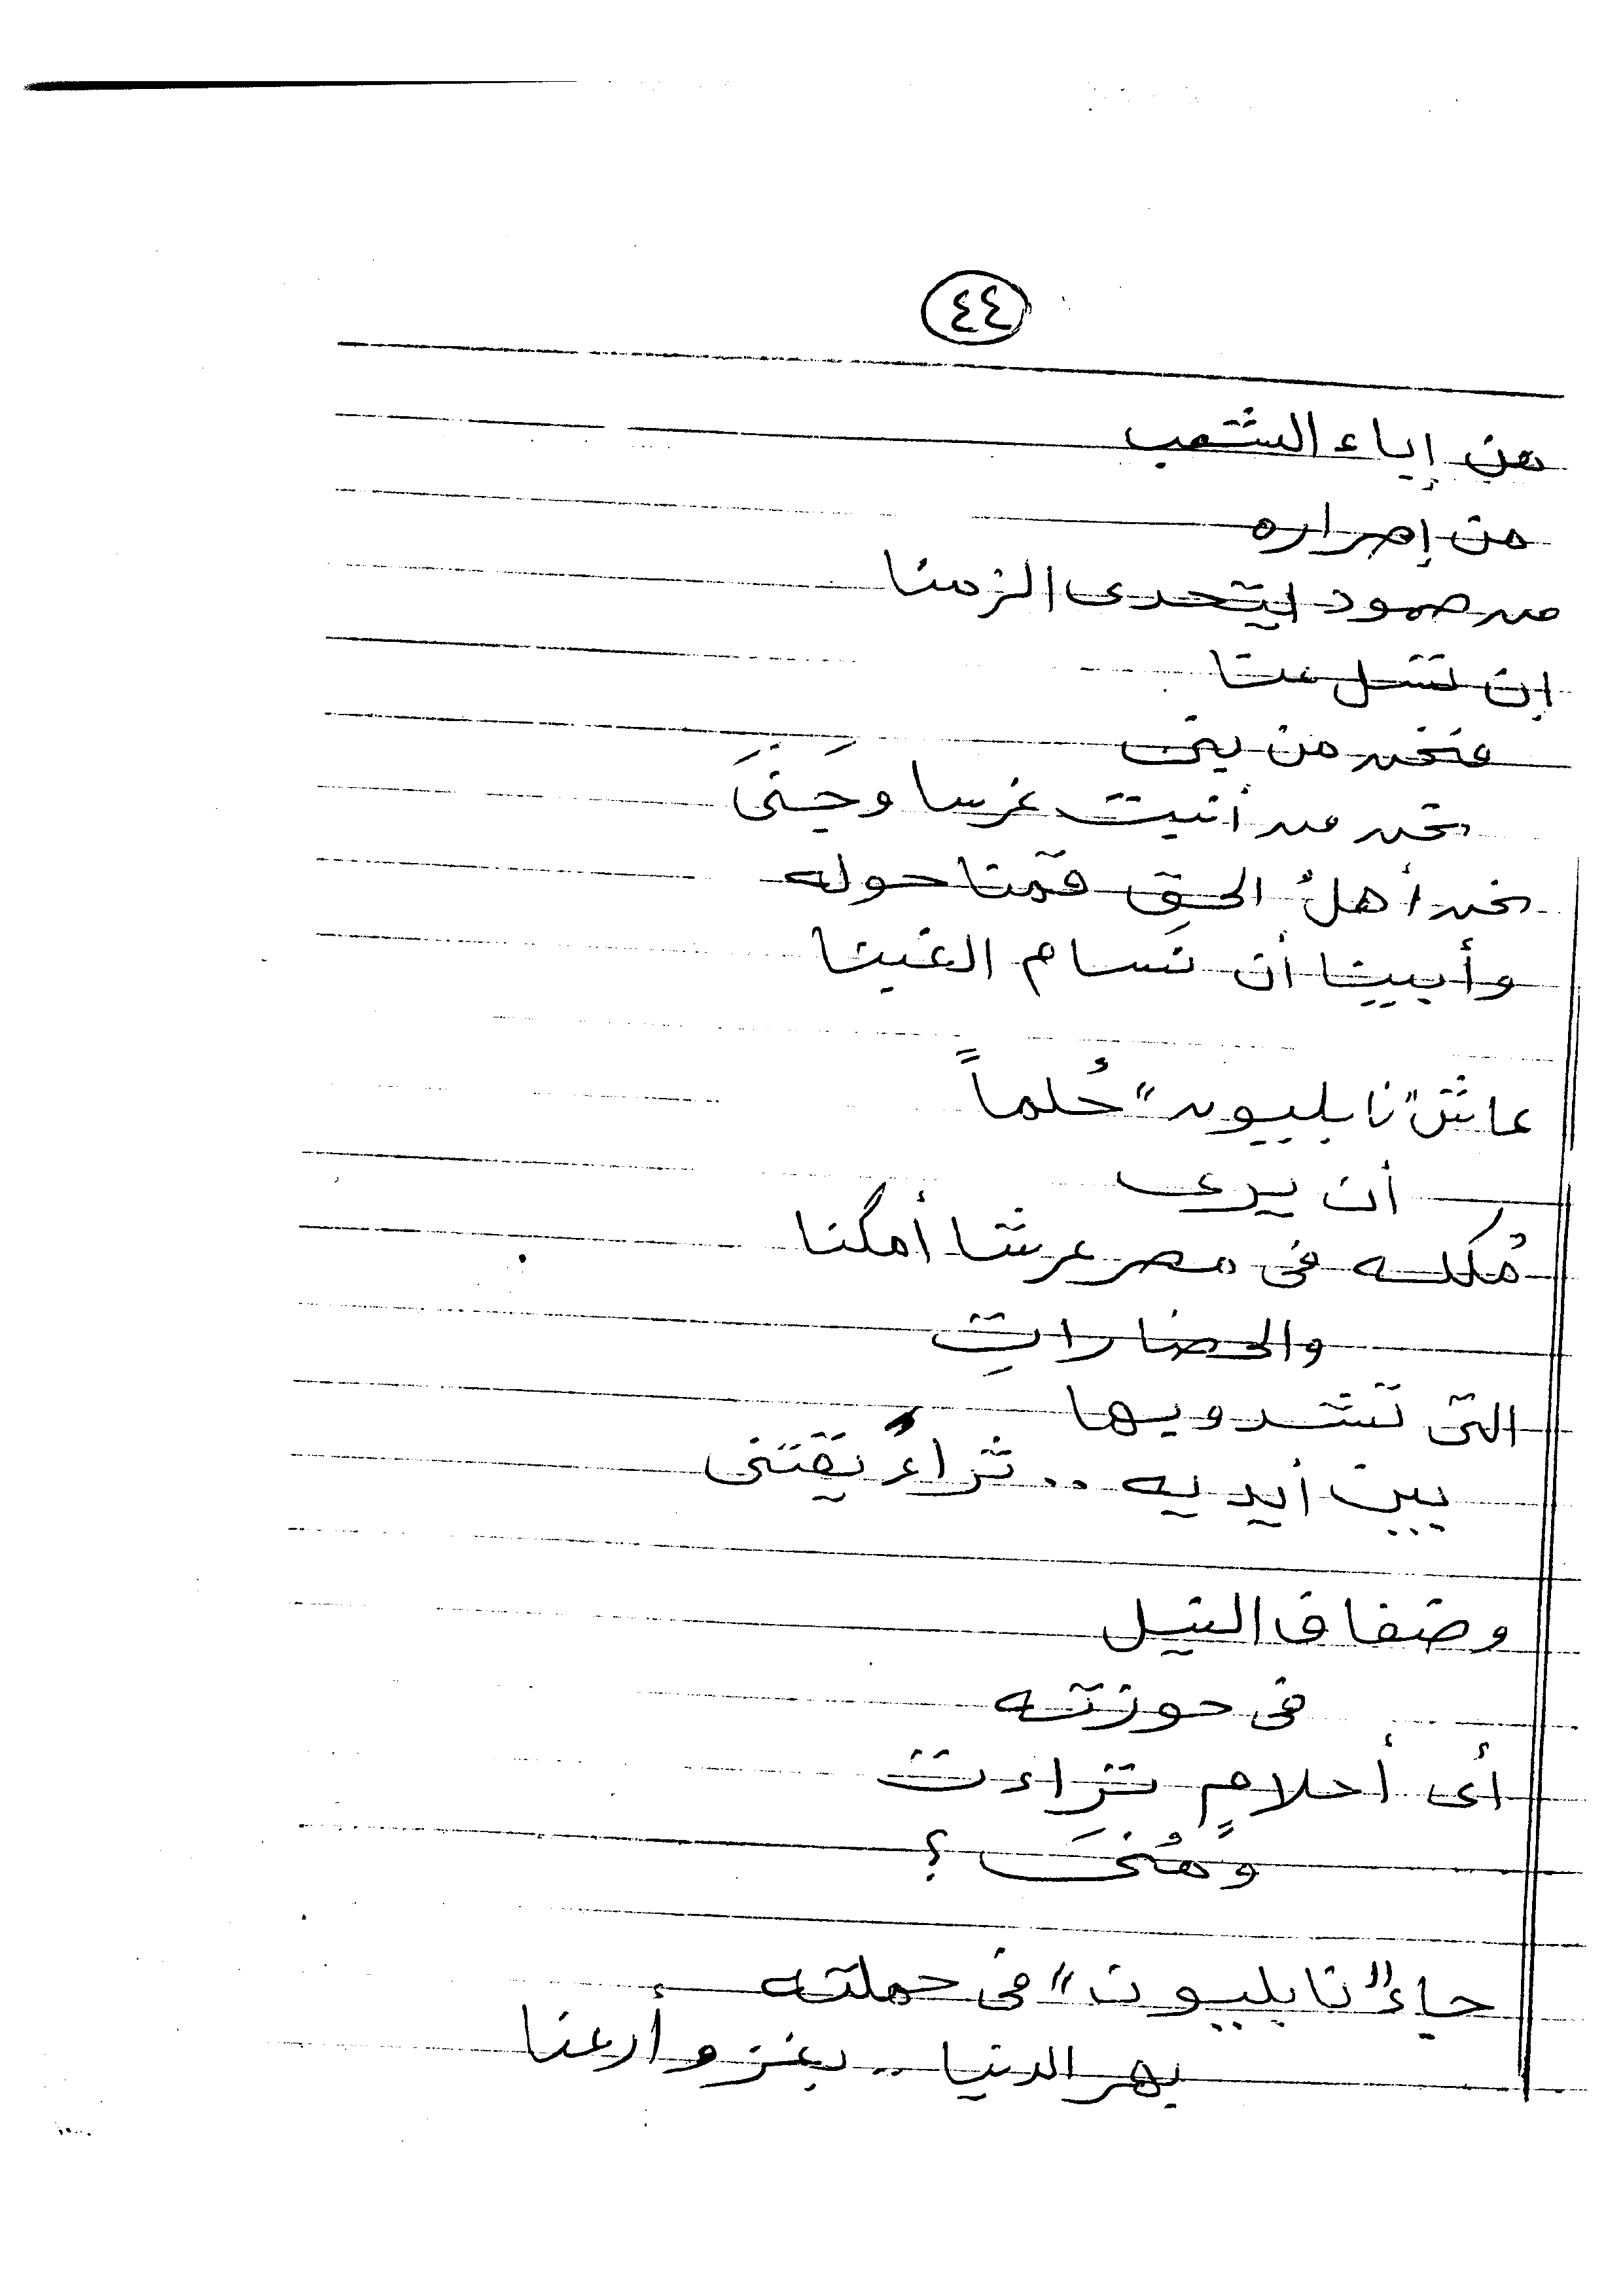 ٤٤
من إباء الشعب
من إصراره
من صمود يتحدى الزمنا
إن تسل عنا
فنحن من بنى
نحن من أنبت غرسا وجَنَى
نحن أهلُ الحقِ قمنا حوله
وأبينا أن نسام الغبنا
عاش "نابليون" حُلماً
أن يرى
مُلكه فى مصر عرشا أمكنا
والحضاراتِ
التى تشدو بها
بين أيديه .. ثراءً يقتنى
وضفاف النيل
فى حوزته
أى أحلامٍ تراءت
ومُنَى ؟
جاء "نابليون" فى حملته
يهر الدنيا .. بغزو أرعنا